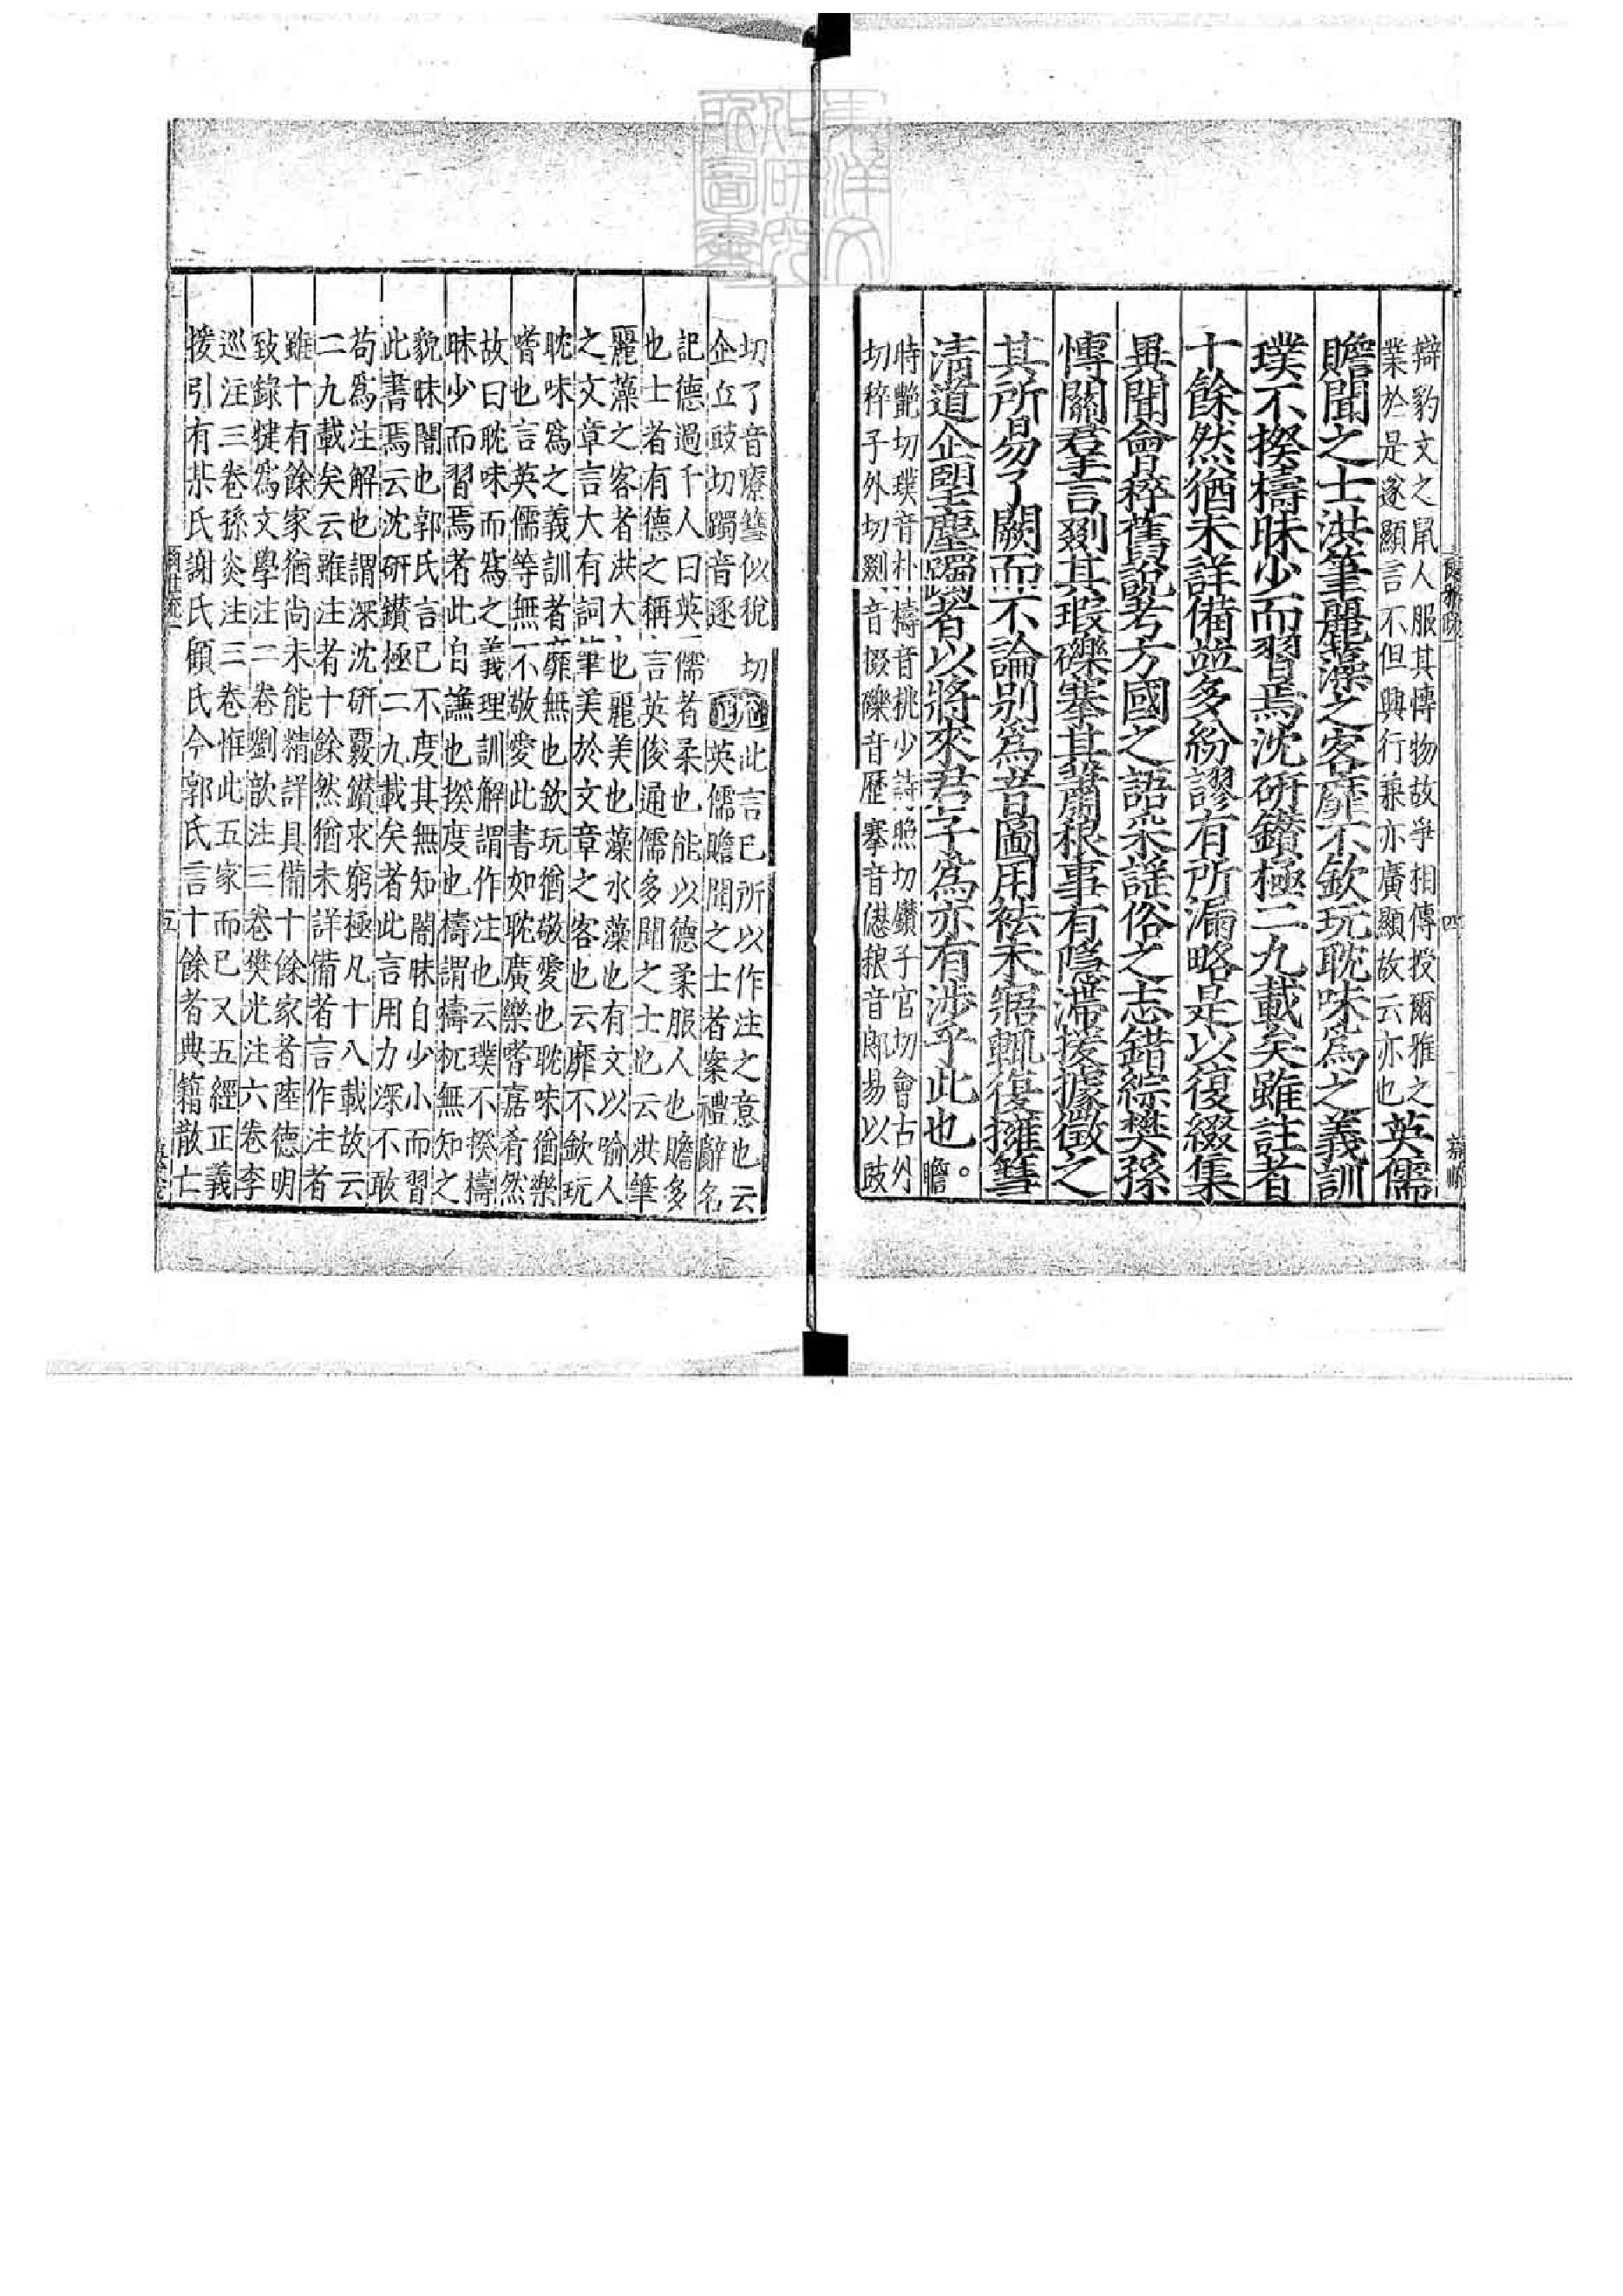 辯豹文之鼠人服其博物故爭相傳授爾雅之
業於是遂顯言不但興行兼亦廣顯故云亦也
英儒
贍聞之士洪筆麗藻之客靡不欽玩耽味爲之義訓
璞不揆檮昧少而習焉沈研鑽極二九載矣雖註者
十餘然猶未詳備並多紛謬有所漏略是以復綴集
異聞會稡舊說考方國之語采謠俗之志錯綜樊孫
博關羣言剟其瑕礫搴其蕭稂事有隱滯援據徵之
其所易了闕而不論別爲音圖用袪未寤輒復擁篲
清道企望塵躅者以將來君子爲亦有涉乎此也。
贍
時艶切璞音朴檮音桃少詩照切鑽子官切會古外
切稡子外切剟音掇礫音歷搴音愆稂音郎易以豉
切了音療篲似稅切
企丘豉切躅音逐
疏
此言已所以作注之意也云
英儒贍聞之士者案禮辯名
記德過千人曰英儒者柔也能以德柔服人也贍多
也士者有德之稱言英俊通儒多聞之士也云洪筆
麗藻之客者洪大也麗美也藻水藻也有文以喻人
之文章言大有詞筆美於文章之客也云靡不欽玩
耽味爲之義訓者靡無也欽玩猶敬愛也耽味猶樂
嗜也言英儒等無不敬愛此書如耽廣樂嗜嘉肴然
故曰耽味而爲之義理訓解謂作注也云璞不揆檮
昧少而習焉者此自謙也揆度也檮謂檮杌無知之
貌昧闇也郭氏言已不度其無知闇昧自少小而習
此書焉云沈研鑽極二九載矣者此言用力深不敢
苟爲注解也謂深沈研覈鑽求窮極凡十八載故云
二九載矣云雖注者十餘然猶未詳備者言作注者
雖十有餘家猶尚未能精詳具備十餘家者陸德明
敍錄犍爲文學注二卷劉歆注三卷樊光注六卷李
巡注三卷孫炎注三卷惟此五家而已又五經正義
援引有某氏謝氏顧氏今郭氏言十餘者典籍散亡